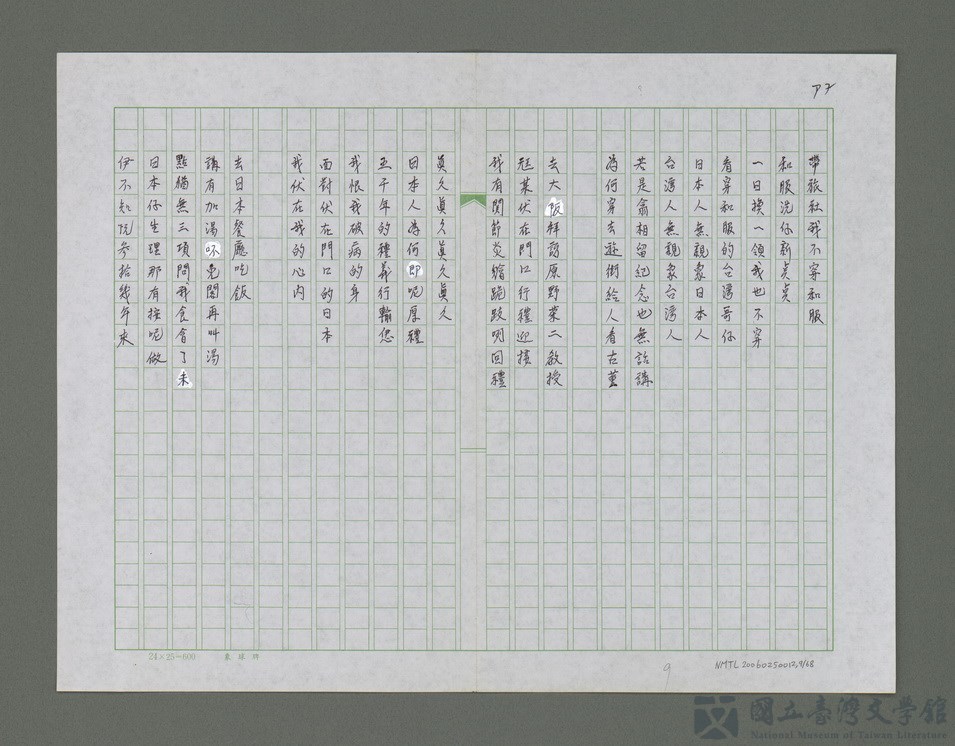 P7
帶旅社我不穿和服
和服洗仔新貞貞
一日換一領我也不穿
看穿和服的台灣哥仔
日本人無親象日本人
台灣人無親象台灣人
共是翕相留紀念也無話講
為何穿去遊街給人看古董
去大阪拜訪原野業二教授
尪某伏在門口行禮迎接
我有関節炎繪跪跤咧回禮
真久真久真久真久
日本人為何即呢厚禮
五千年的禮義行輸您
我恨我破病的身
面對伏在門口的日本
我伏在我的心內
去日本餐廳吃飯
講有加湯呸兜閣再叫湯
點貓無三項問我食會了未
日本仔生理那有按呢做
伊不知阮參拾幾年來
24×25=600
9
NMTL20060250012,9/68
國立臺灣文學館
National Museum of Taiwan Literature